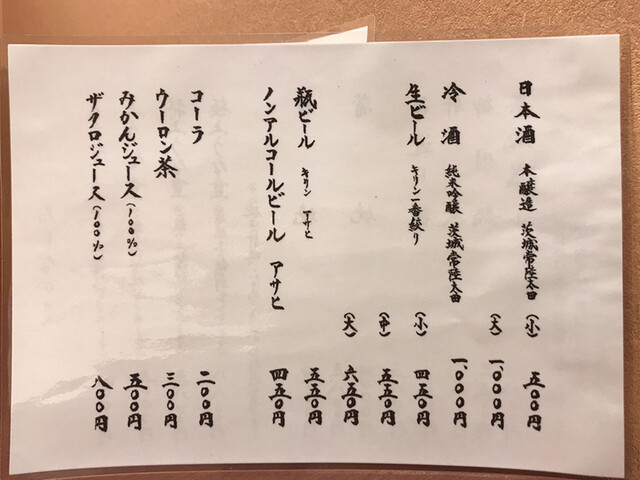 日本酒 本醸造 茨城常陸太田 (小) 五〇〇円
(大) 一、〇〇〇円
冷酒 純米吟醸 茨城常陸太田 一、〇〇〇円
生ビール キリン一番絞り (小) 四五〇円
(中) 五五〇円
(大) 六五〇円
瓶ビール キリン アサヒ 五五〇円
ノンアルコールビール アサヒ 四五〇円
コーラ 二〇〇円
ウーロン茶 三〇〇円
みかんジュース(100%) 五〇〇円
ザクロジュース(100%) 八〇〇円